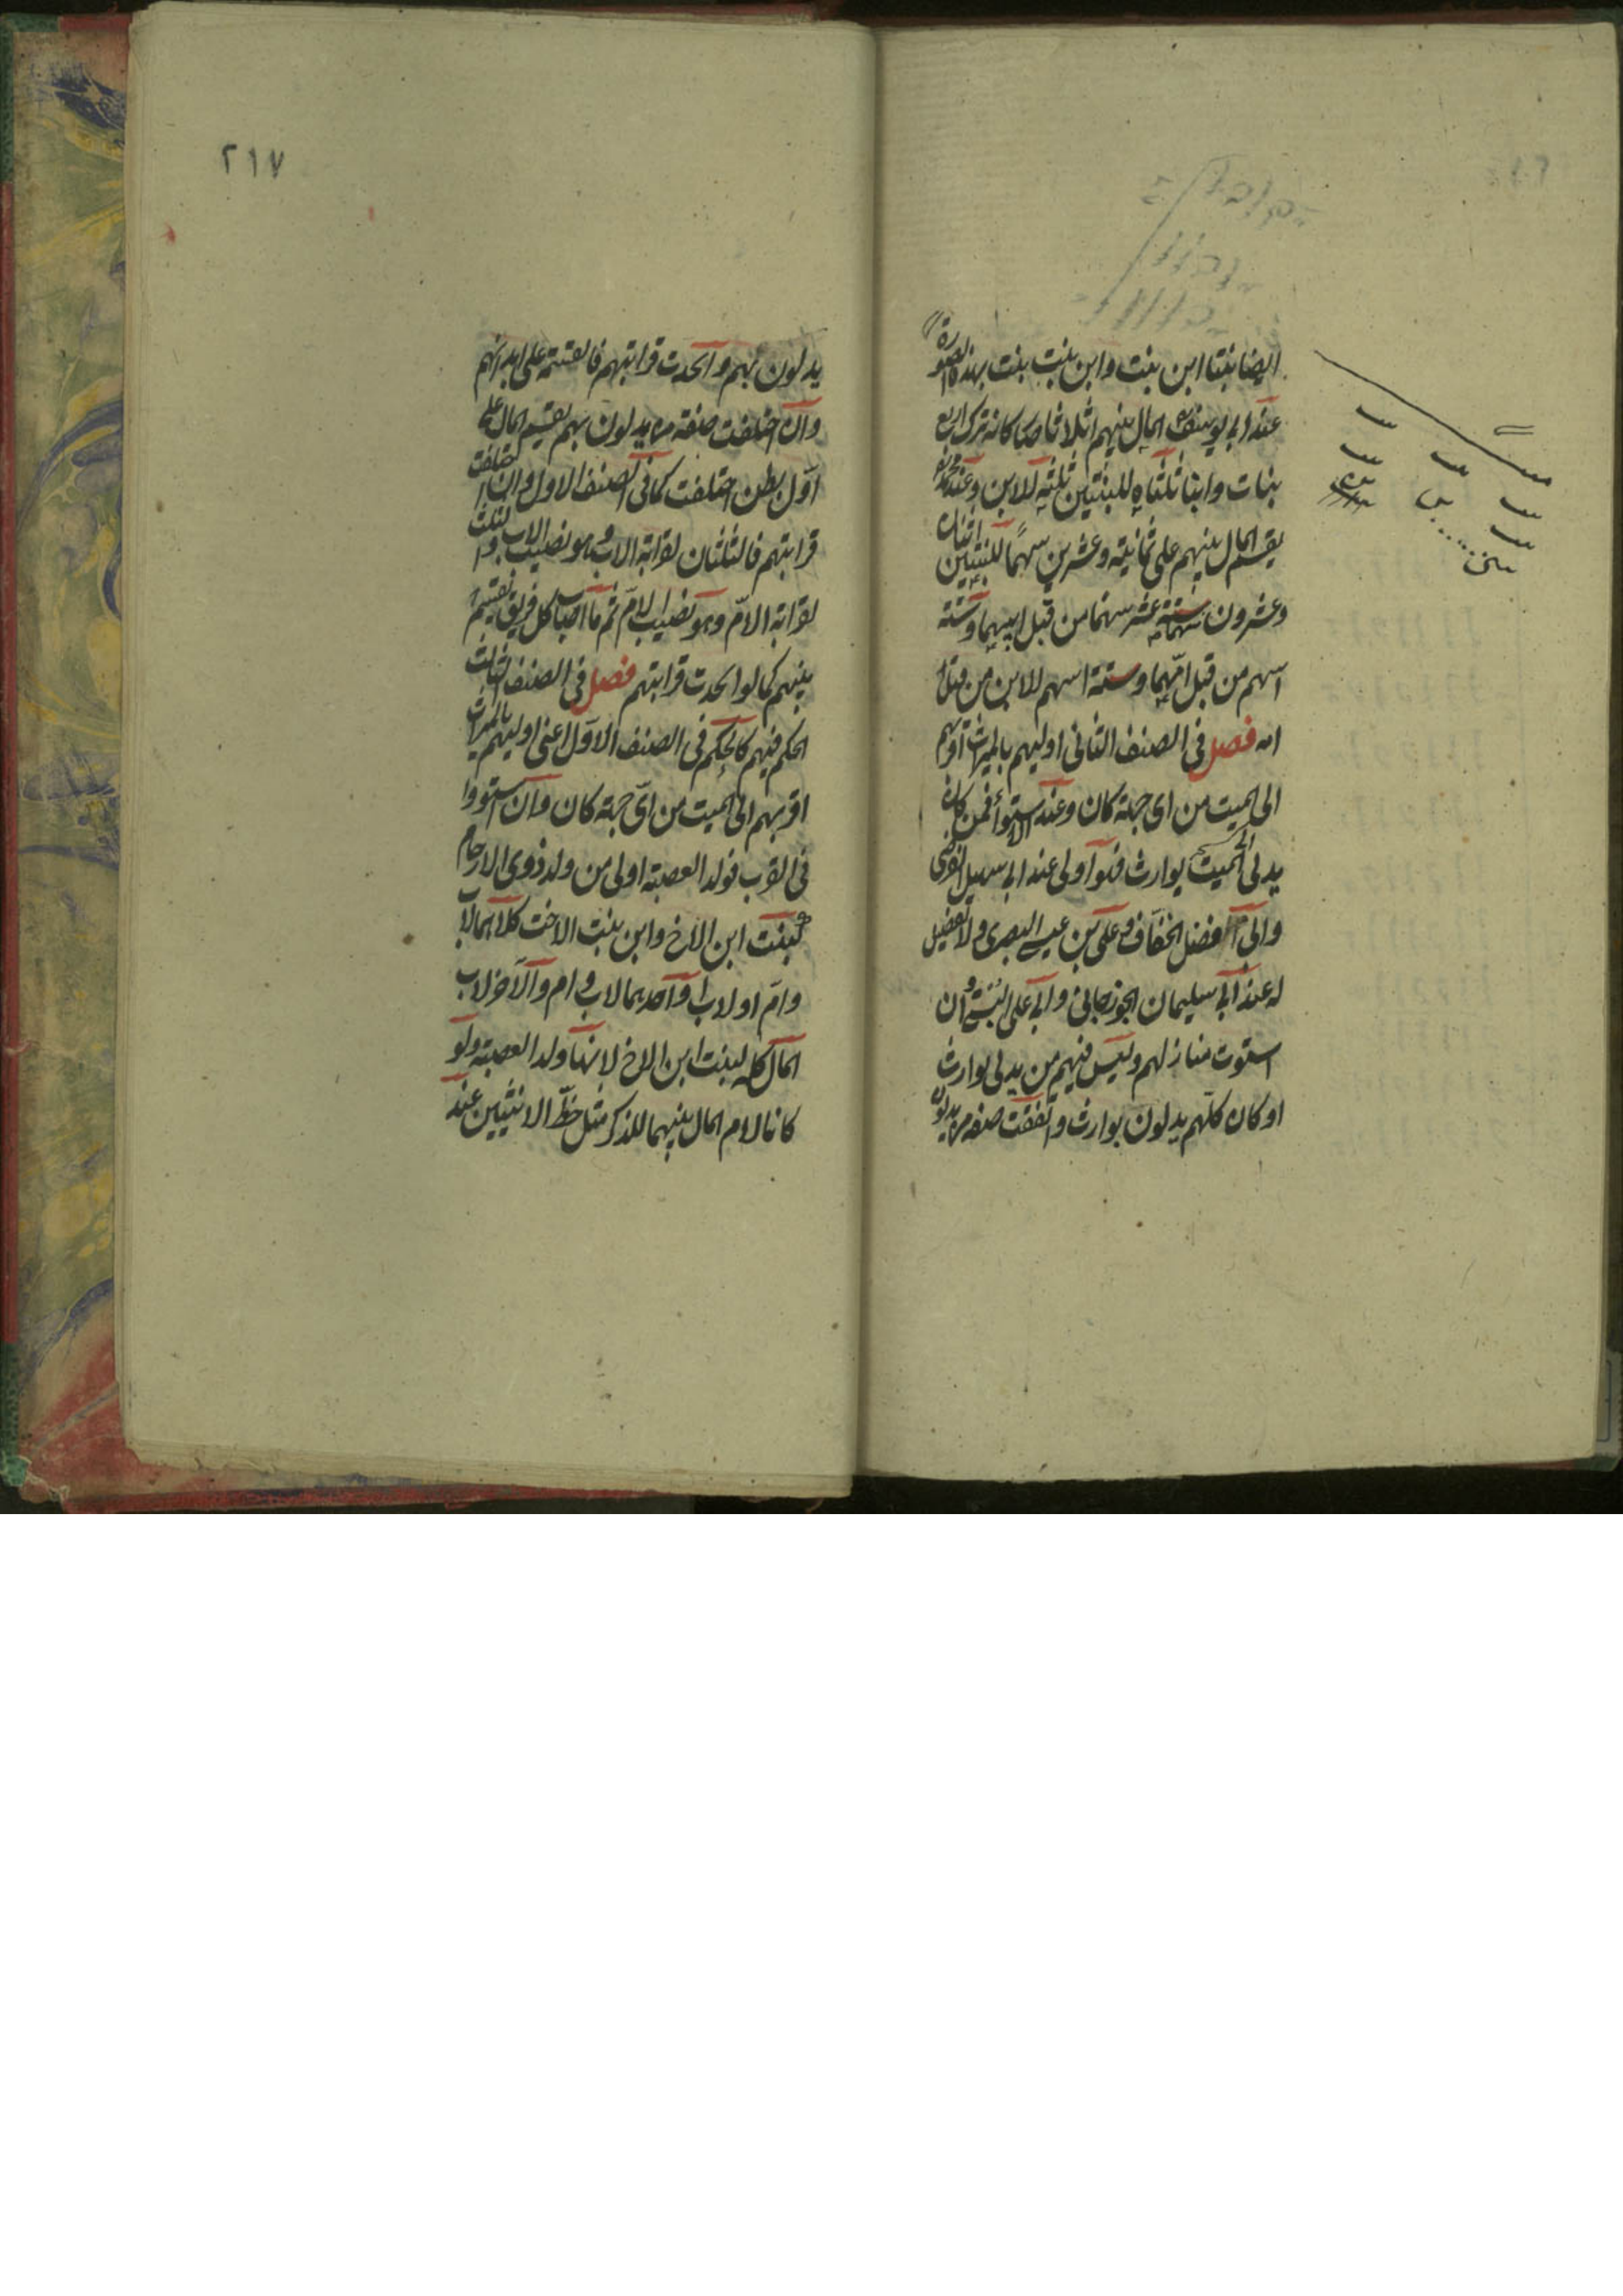 ايضا بنتا ابن بنت وابن بنت بنت بهذه الصورة
عند ابي يوسف المال بينهم اثلاثا صار كانه ترك اربع
بنات وابنا ثلثاه للبنتين ثلثه للابن وعند محمد
يقسم المال بينهم على ثمانية وعشرين سهمًا للبنتين اثنان
وعشرون ستة عشر سهما من قبل ابيهما وستة
اسهم من قبل امّهما وستة اسهم للابن من قبل
امه فصل فى الصنف الثانى اوليهم بالميراث اقربهم
الى الميت من اى جهة كان وعند الاستواء فمن كان
يدلى الى الميت بوارث فهو اولى عند ابى سهيل الفرضى
وابى فضل الخفّاف وعلى بن عيسى البصرى ولا تفضيل
له عند ابى سليمان الجوزجانى وابى على البستى وان
استوت منازلهم وليس فيهم من يدلى بوارث
او كان كلّهم يدلون بوارث واتفقت صفة من يدلون
٢١٧
يدلون بهم واتحدت قرابتهم فالقسمة على ابدانهم
وان اختلفت صفة من يدلون بهم يقسم المال على
اوّل بطن اختلفت كما فى الصنف الاول وان اختلفت
قرابتهم فالثلثان لقرابة الاب وهو نصيب الاب والثلث
لقرابة الامّ وهو نصيب الامّ ثم ما اصاب كل فريق يقسم
بينهم كما لو اتحدت قرابتهم فصل فى الصنف الثالث
الحكم فيهم كالحكم فى الصنف الاوّل اعنى اوليهم بالميراث
اقربهم الى الميت من اىّ جهة كان وان استووا
فى القرب فولد العصبة اولى من ولد ذوى الارحام
كبنت ابن الاخ وابن بنت الاخت كلاهما لاب
وامّ او لاب او احدهما لاب وام والآخر لاب
المال كله لبنت ابن الاخ لانها ولد العصبة ولو
كانا لام المال بينهما للذكر مثل حظّ الانثيين عند